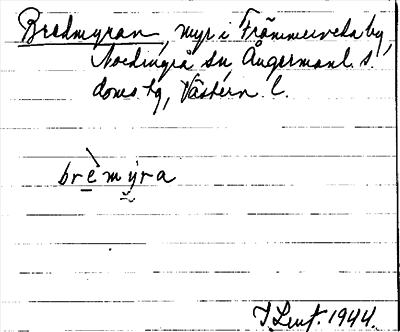 Bredmyran, myr i Främmerveda by,
Nordingrå sn, Ångermanl. s.
doms hg, Västern. l.
brèmýra
1944.